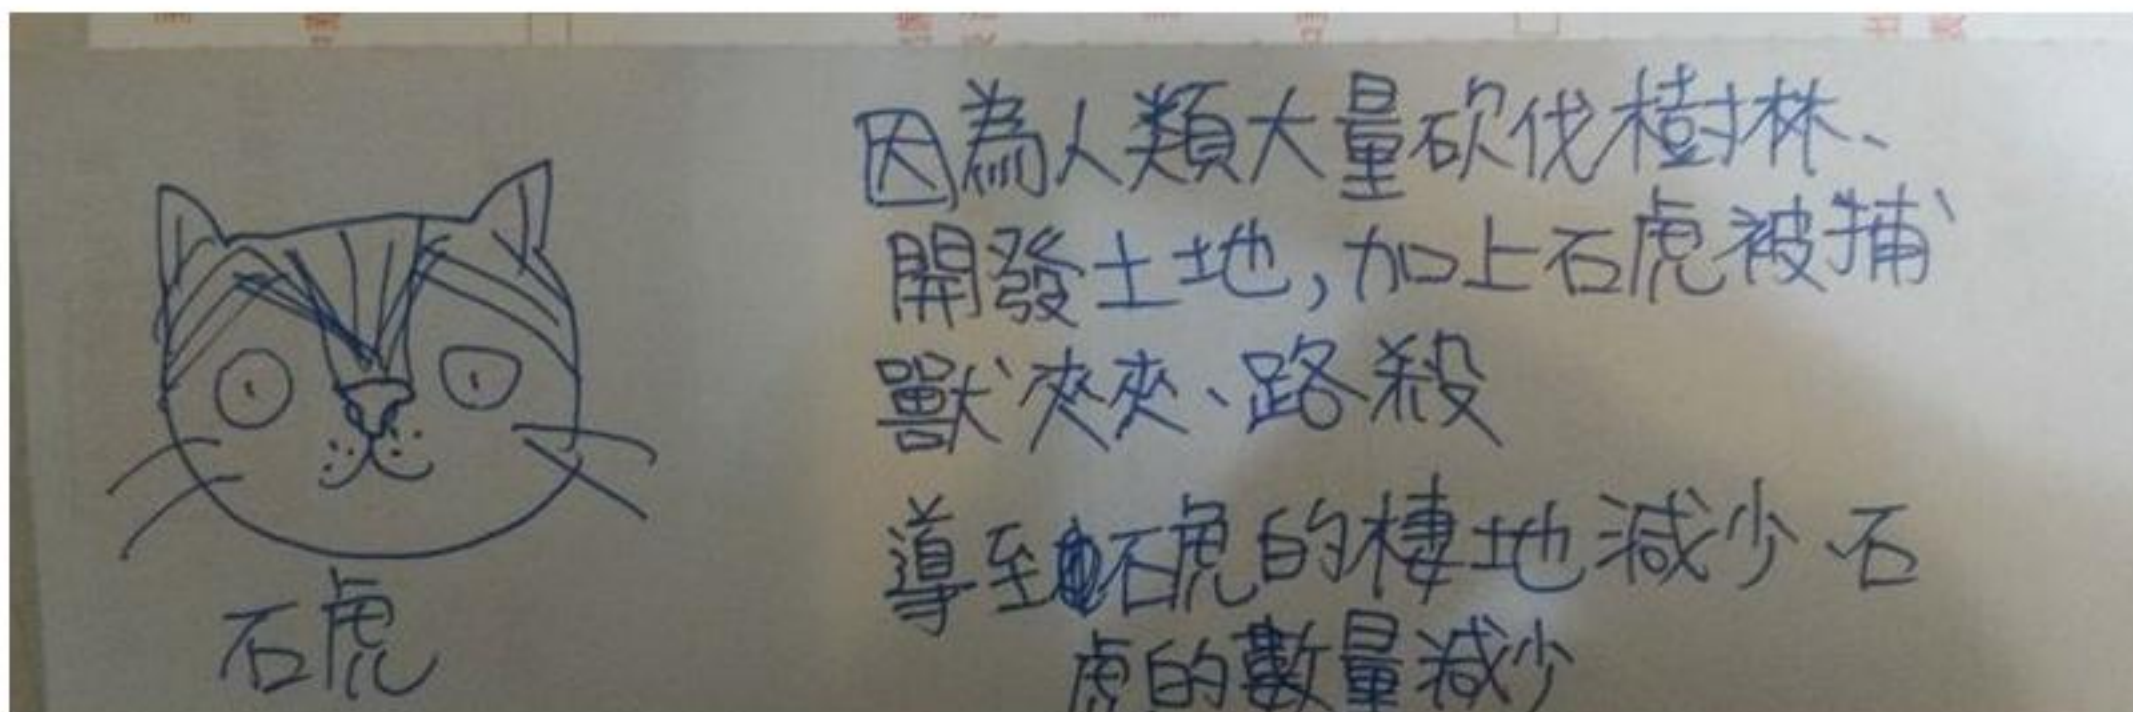 因為人類大量砍伐樹林、
開發土地,加上石虎被捕
獸夾夾、路殺
導至石虎的棲地減少、石
虎的數量減少
石虎